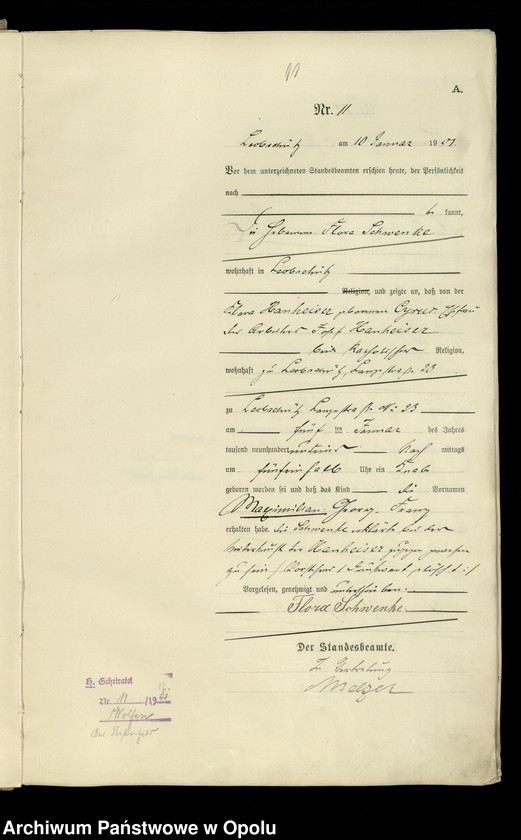 11
A.
Nr. 11
Leobschütz am 10 Januar 1901
Vor dem unterzeichneten Standesbeamten erschien heute, der Persönlichkeit
nach
be kannt,
die Hebamme Flora Schwenke
wohnhaft in Leobschütz
Religion, und zeigte an, daß von der
Klara Hanheiser, geborenen Cyrus, Ehefrau
des Arbeiters Josef Hanheiser
beide katholischer Religion,
wohnhaft zu Leobschütz, Langestraße 23
zu Leobschütz Langestraße No 23
am fünf ten Januar des Jahres
tausend neunhundert und eins Nach mittags
um fünfeinhalb Uhr ein Knabe
geboren worden sei und daß das Kind die Vornamen
Maximilian Georg Franz
erhalten habe. Die Schwenke erklärte bei der
Niederkunft der Hanheiser zugegen gewesen
zu sein
Vorgelesen, genehmigt und unterschrieben.
Flora Schwenke
Der Standesbeamte.
In Vertretung
Melzer
H. Geheiratet
Nr. 11 /19
Wolfen
Archiwum Państwowe w Opolu